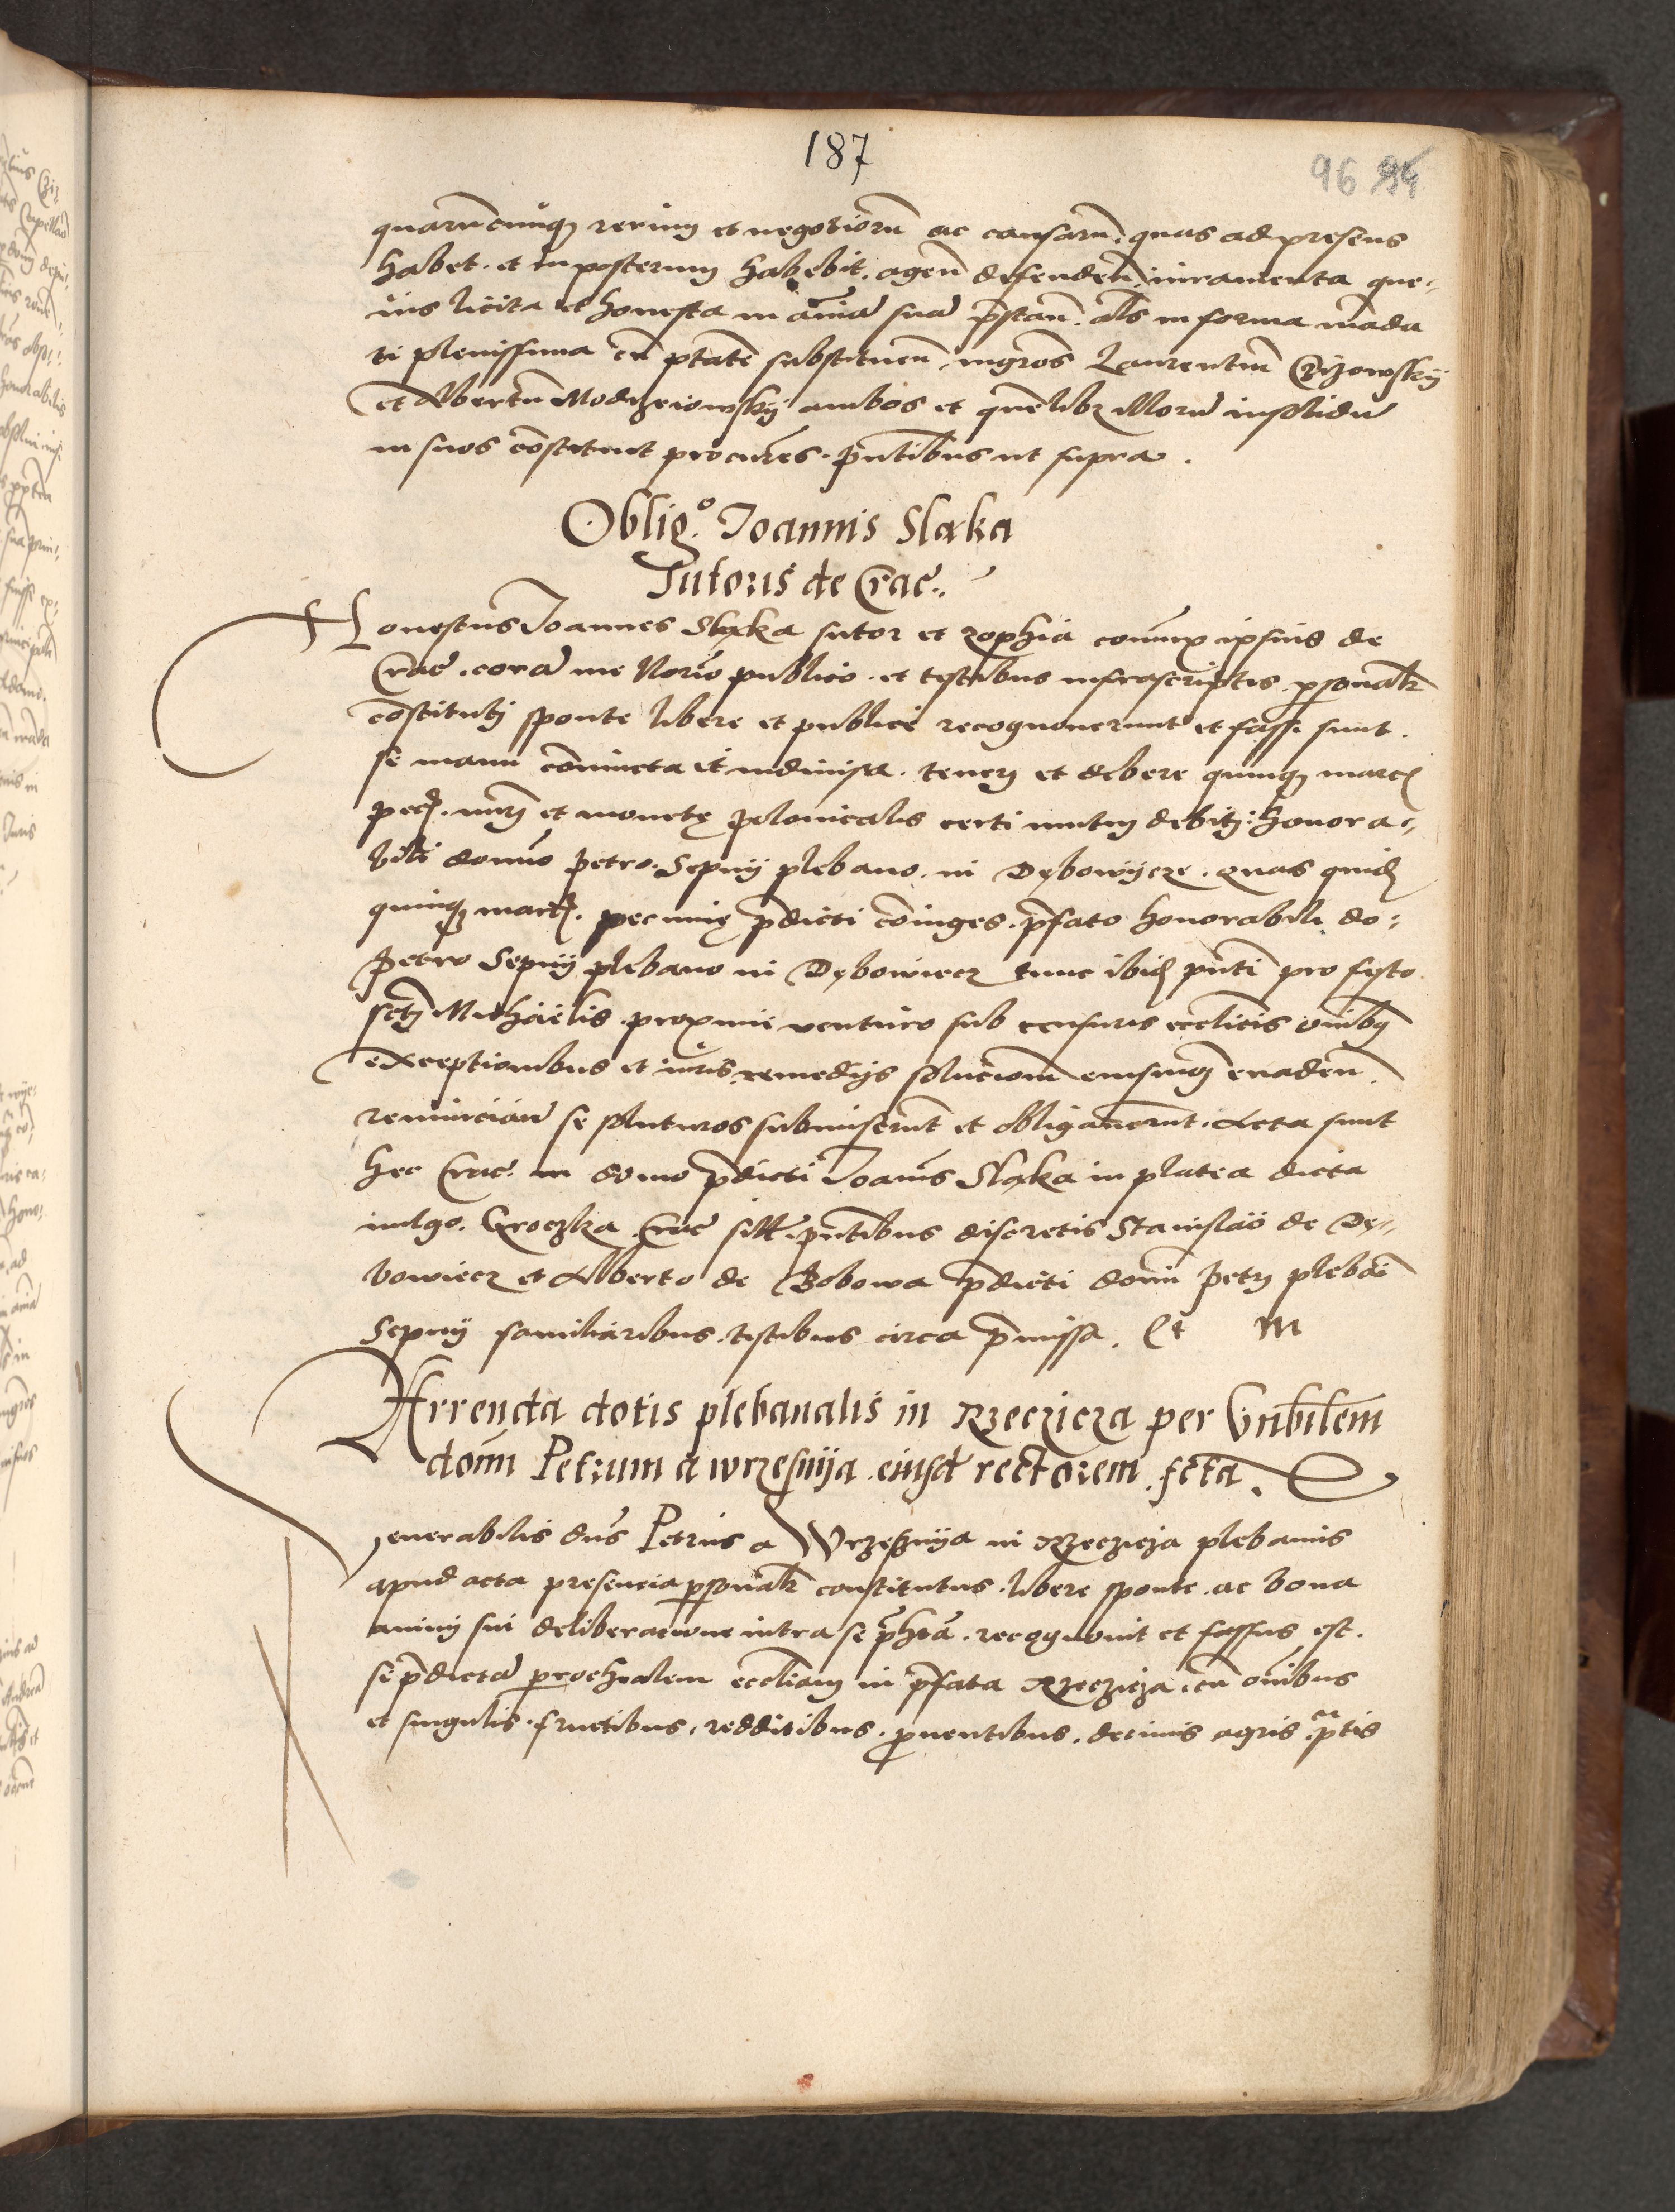 187
96 94
quarūcunq₃ rerum et negotiorū ac causarū. quas ad presens
habet. et in posterum habebit. agen̄ defenden̄. iuramenta que-
uis licita et honesta in aīam suā p̄stan̄. als̄ in forma māda
ti plenissima cū ptāte substituen̄. mgrōs Laurentiū Czyzowskij
et Albertū Modrzeiowskij ambos et quēlib₃ illorū insolidū
in suos cōstituit procurēs. p̄ntibus ut supra.
Oblig.º Joannis Slaka
Sutoris de Crac̄.
Honestus Joannes Slaka sutor et Zophia coniunx ipsius de
Crac̄. corā me Norio publico. et testibus infrascriptis. personal̄r
cōstituti sponte libere et publice recognouerunt et fassi sunt.
se manu cōniuncta et indiuisa. teneri et debere quinq₃ marcᷤ
pecᷤ. nūri et monetę polonicalis certi mutui debiti. Honora-
bili domīno Petro. Sepnij plebano. in Dębowijecz. Quas quidᷤ
quinq₃ marcᷤ. pecunię p̄dicti cōiuges. p̄fato honorabili do:
Petro Sepnij plebano in Dębowiecz tunc ibidᷤ pn̄ti pro festo
scti Michaelis. proxime venturo sub censuris ecclicis om̄ibus
exceptionibus et iuris remedijs solucionem eiusmōi euaden̄.
renuncian̄ se soluturos submiserūt et obligauerūt. Acta sunt
hec Crac̄. in domo p̄dicti Joānis Slaka in platea dicta
vulgo. Groczka Crac̄ sitt̄. pn̄tibus discretis Stanislao de Dę-
bowiecz et Alberto de Bobowa p̄dicti domi Petri plebāi
Sepnij familiaribus. testibus circa p̄missa. Et m
Arrenda dotis plebanalis in Rzeczicza per Vnbilem
dom̄ Petrum a wrzesnija. eiusd rectorem. fcta.
Venerabilis dn̄s Petrus a Wrzesznija in Rzeczicza plebanus
apud acta presencia personal̄r constitutus. libere sponte. ac bona
animi sui deliberacione intra se p̄hita. recognouit et fassus est.
se p̄dictā parochialem eccliam in p̄fata Rzeczicza. cū om̄ibus
et singulis. fructibus. redditibus. prouentibus. decimis agris. p̄tis